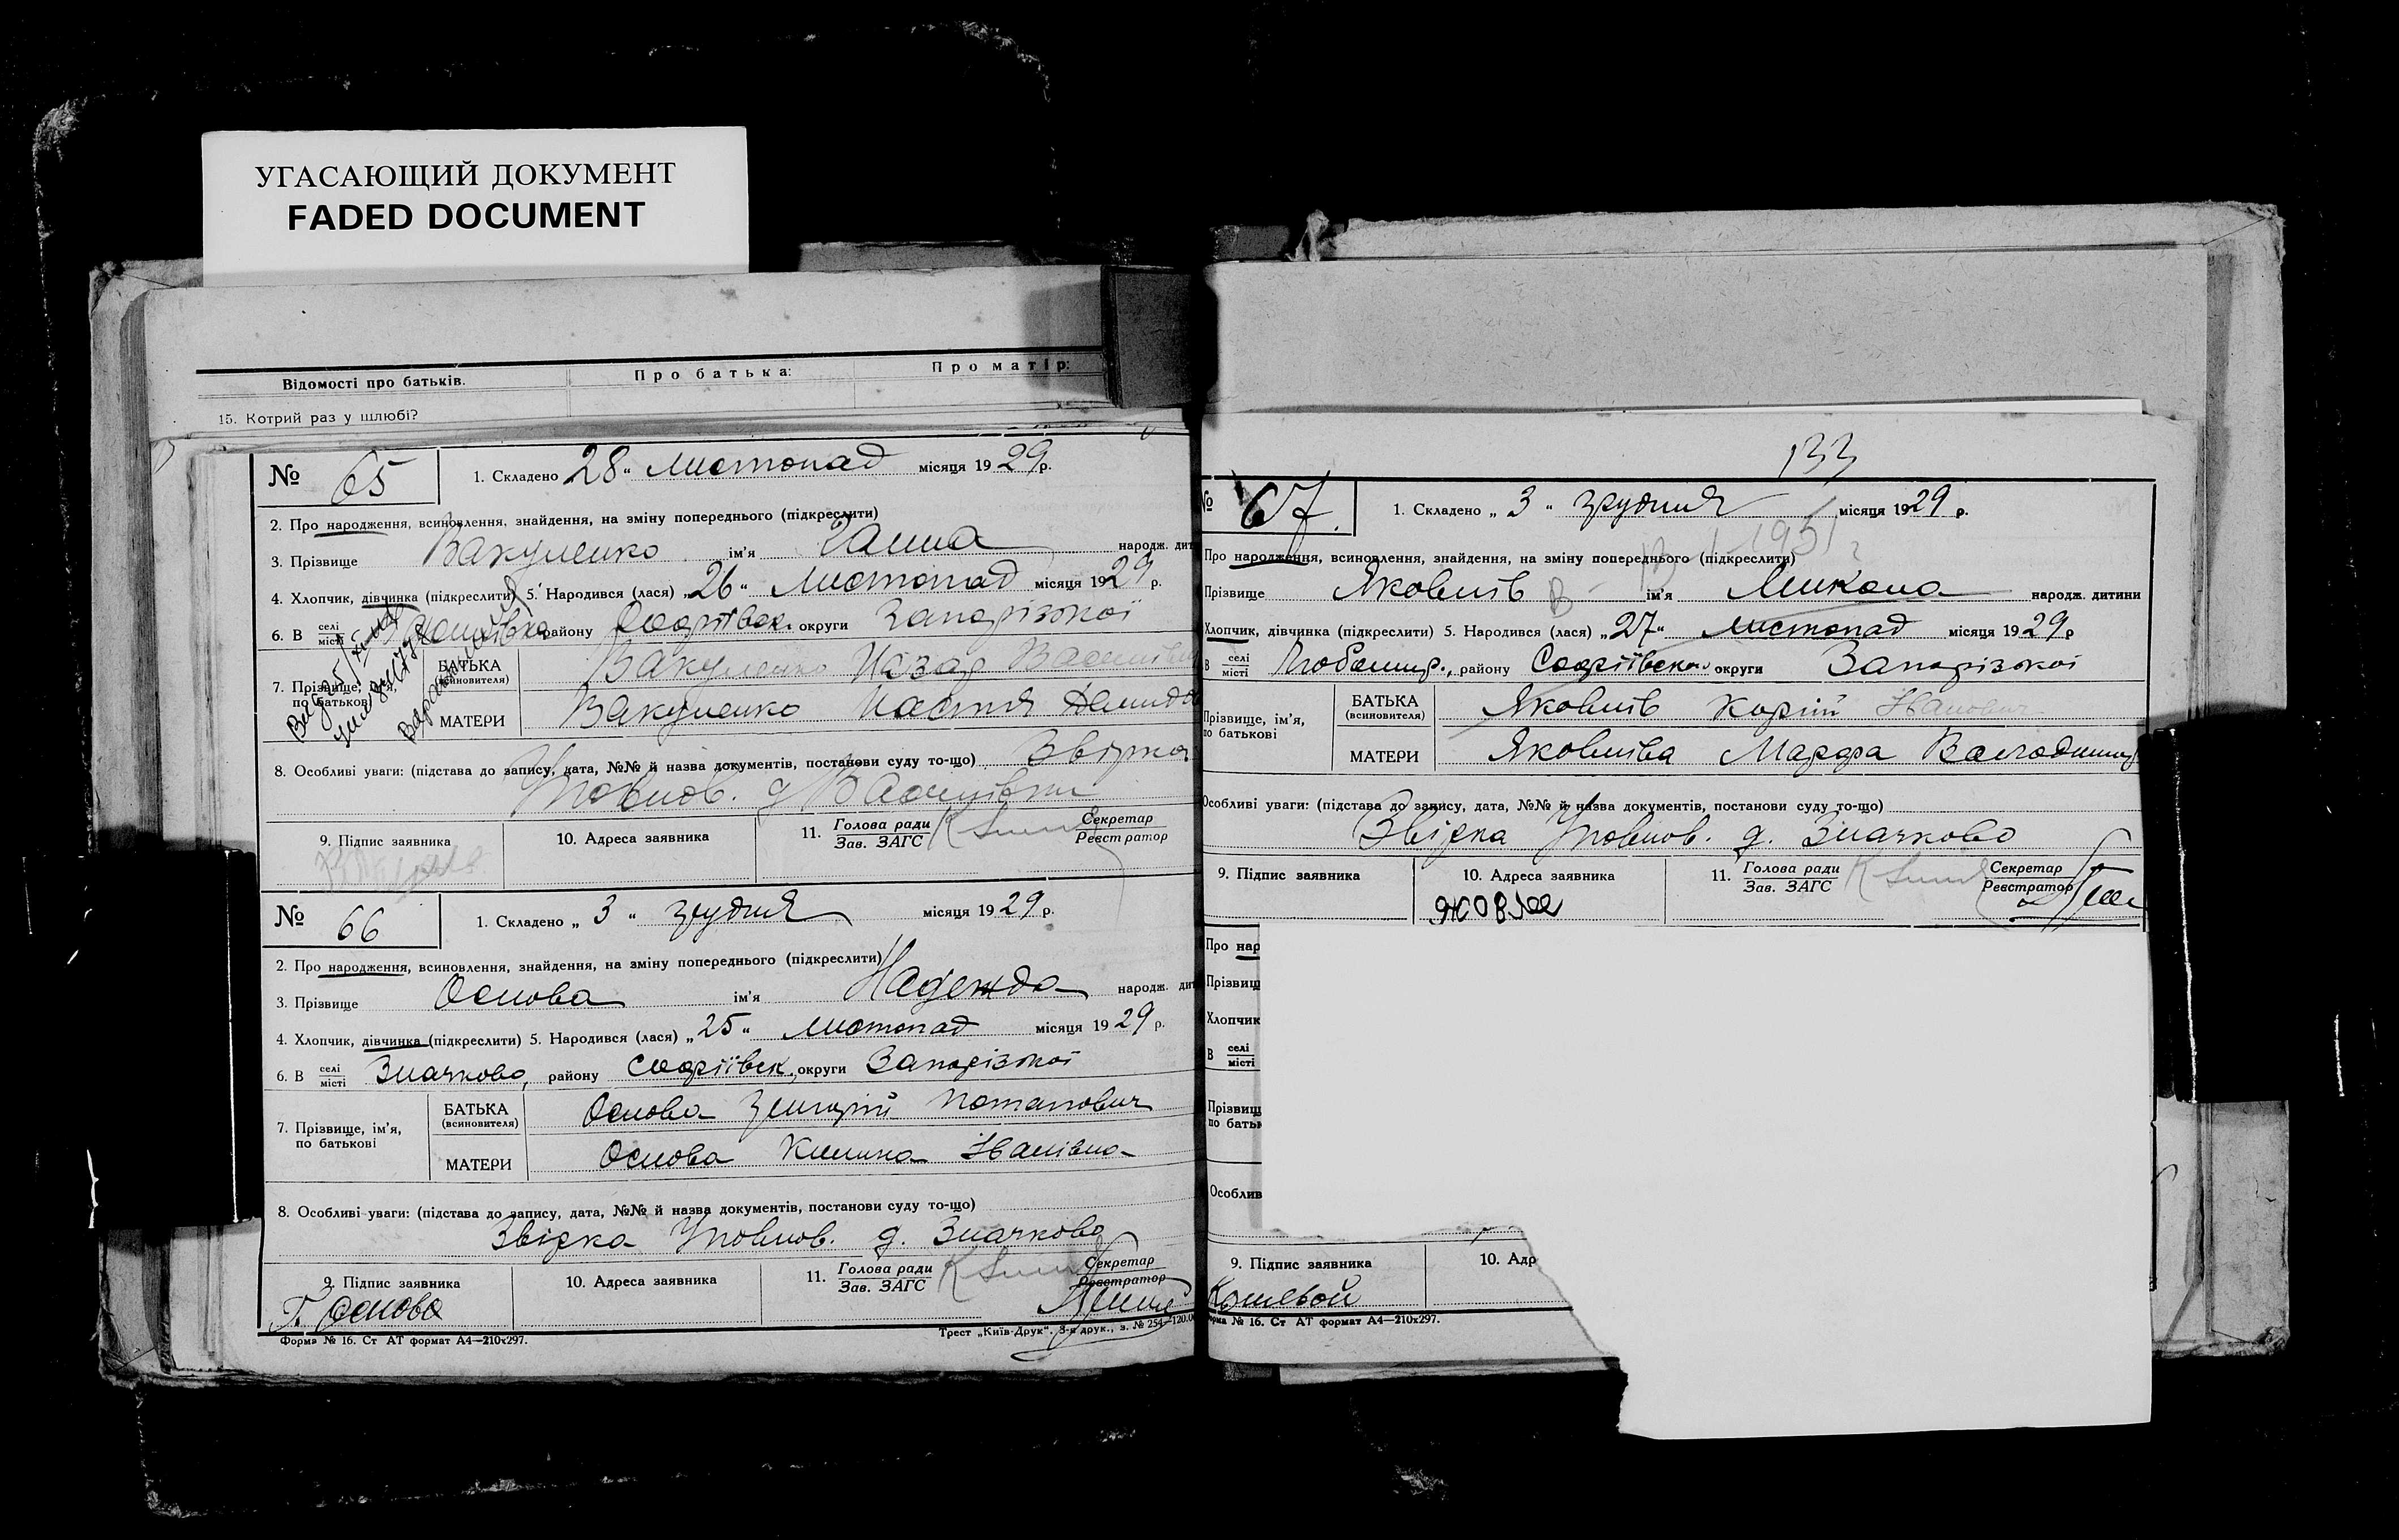 УГАСАЮЩИЙ ДОКУМЕНТ
FADED DOCUMENT
Відомості про батьків. Про батька: Про матір:
15. Котрий раз у шлюбі?
№ 65 1. Складено 28 " листопад місяця 1929 р.
2. Про народження, всиновлення, знайдення, на зміну попереднього (підкреслити)
3. Прізвище Вакуленко ім'я Ганна народж. дит
4. Хлопчик, дівчинка (підкреслити) 5. Народився (лася) „26" листопад місяця 1929 р.
6. В селі місті району Софіївськ. округи Запорізької
7. Прізвище, ім'я, по батькові
БАТЬКА (всиновителя) Вакуленко Назар
МАТЕРИ Вакуленко Настя
8. Особливі уваги: (підстава до запису, дата, №№ й назва документів, постанови суду то-що) Звірка
Уповнов. д Василівки
9. Підпис заявника 10. Адреса заявника 11. Голова ради Зав. ЗАГС Секретар Реєстратор
№ 66 1. Складено „ 3 " грудня місяця 1929 р.
2. Про народження, всиновлення, знайдення, на зміну попереднього (підкреслити)
3. Прізвище Основа ім'я Надежда народж. дит
4. Хлопчик, дівчинка (підкреслити) 5. Народився (лася) „25" листопад місяця 1929 р.
6. В селі місті Значково, району Софіївськ., округи Запорізької
7. Прізвище, ім'я, по батькові
БАТЬКА (всиновителя) Основа Григорій Потапович
МАТЕРИ Основа Килина Іванівна
8. Особливі уваги: (підстава до запису, дата, №№ й назва документів, постанови суду то-що)
Звірка Уповнов. д. Значково
9. Підпис заявника 10. Адреса заявника 11. Голова ради Зав. ЗАГС Секретар Реєстратор
Г. Основа
Форма № 16. Ст АТ формат А4—210х297. Трест „Київ-Друк". 3-я друк., з. № 254—120.0
133
№ 67. 1. Складено „ 3 " грудня місяця 1929 р.
Про народження, всиновлення, знайдення, на зміну попереднього (підкреслити)
Прізвище Яковлів ім'я Микола народж. дитини
Хлопчик, дівчинка (підкреслити) 5. Народився (лася) „27" листопад місяця 1929 р
В селі місті Любомир., району Софіївськ. округи Запорізької
Прізвище, ім'я, по батькові
БАТЬКА (всиновителя) Яковлів Корній Іванович
МАТЕРИ Яковліва Марфа
Особливі уваги: (підстава до запису, дата, №№ й назва документів, постанови суду то-що)
Звірка Уповнов. д. Значково
9. Підпис заявника 10. Адреса заявника 11. Голова ради Зав. ЗАГС Секретар Реєстратор
Про нар
Прізвищ
Хлопчик
В селі місті
Прізвищ
по батьк
Особлив
9. Підпис заявника 10. Адр
Кошевой
рма № 16. Ст АТ формат А4—210х297.